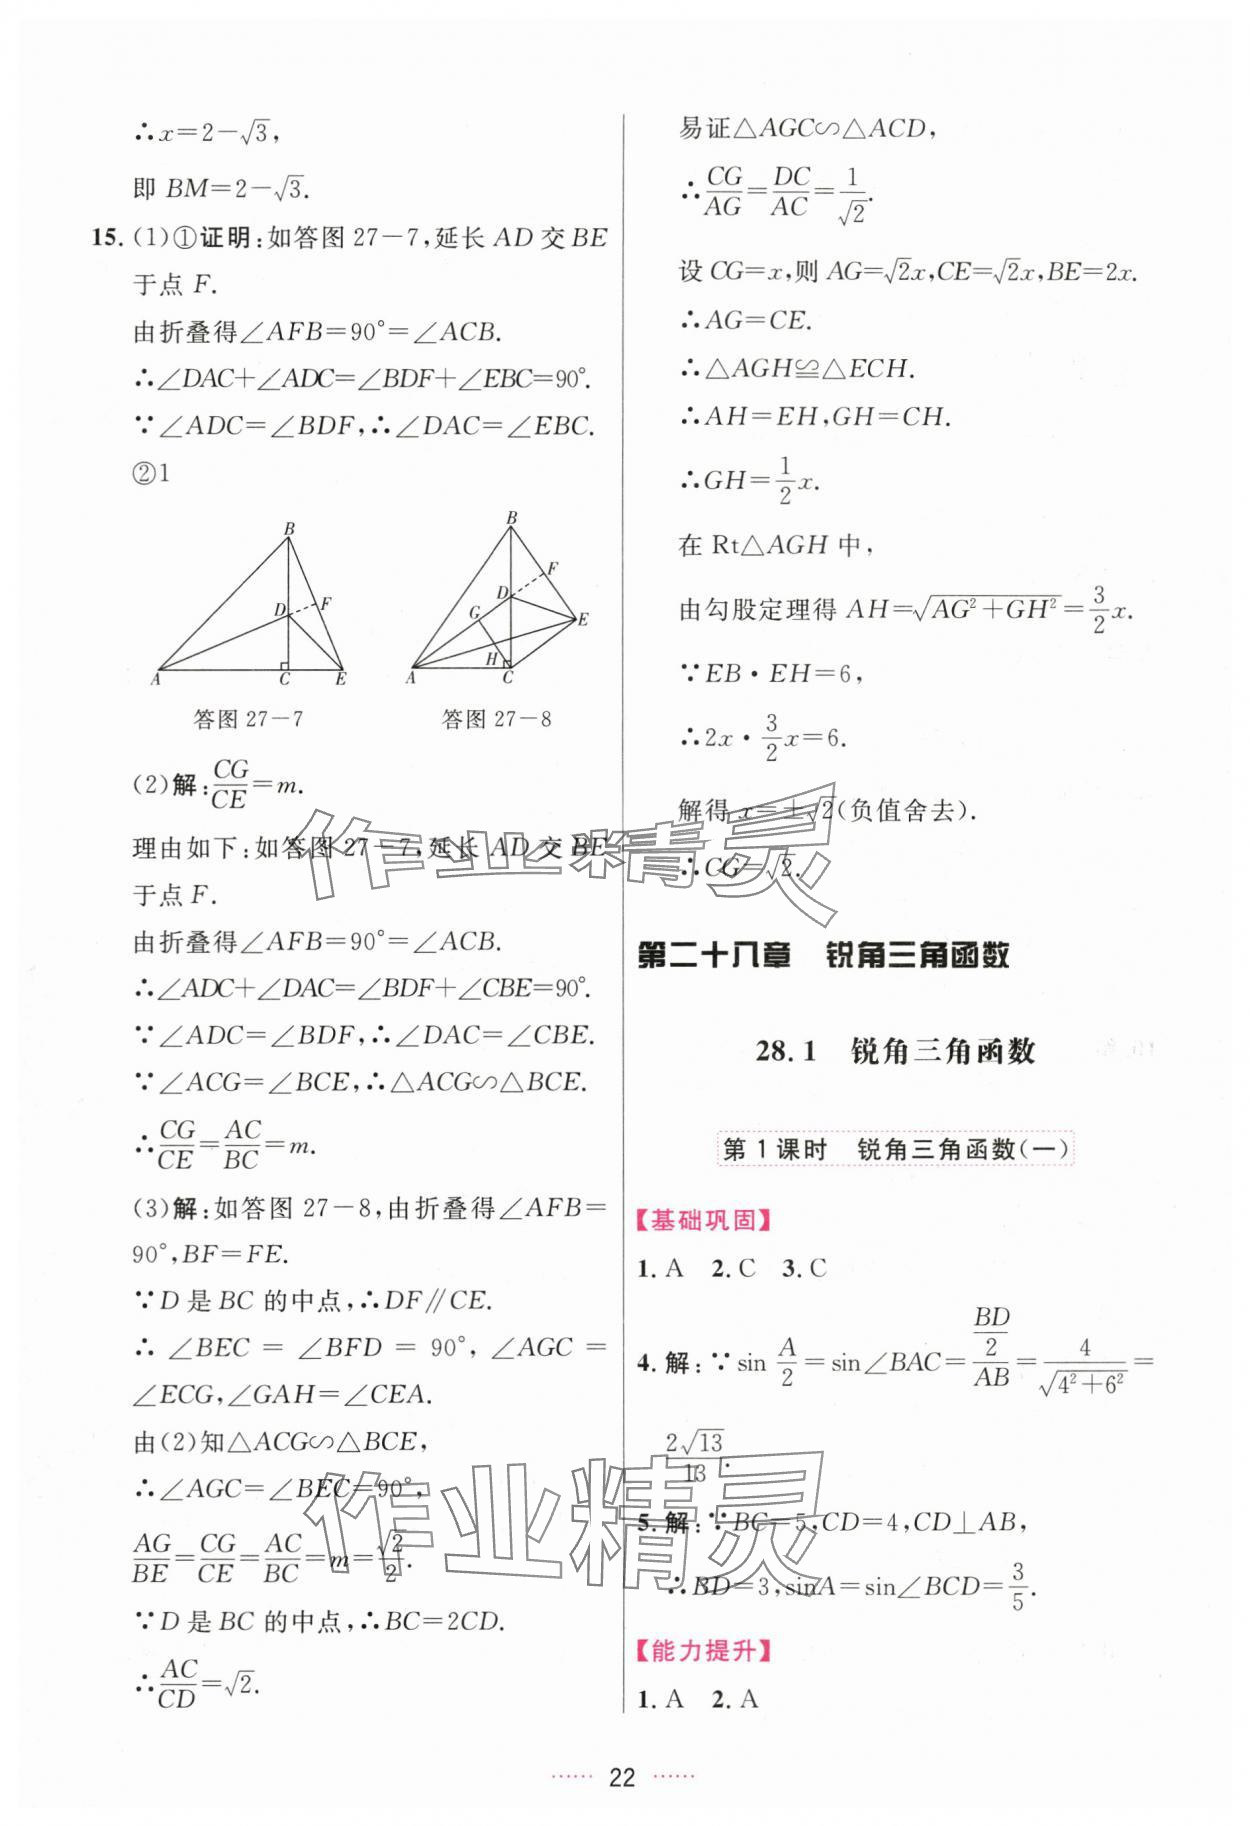 ∴x=2-√3,
即 BM=2-√3.
15. (1)①证明:如答图 27-7,延长 AD 交 BE
于点 F.
由折叠得∠AFB=90°=∠ACB.
∴∠DAC+∠ADC=∠BDF+∠EBC=90°.
∵∠ADC=∠BDF,∴∠DAC=∠EBC.
②1
B
D
F
A
C
E
答图 27-7
B
D
F
G
E
H
A
C
答图 27-8
(2)解:CG/CE=m.
理由如下:如答图 27-7,延长 AD 交 BE
于点 F.
由折叠得∠AFB=90°=∠ACB.
∴∠ADC+∠DAC=∠BDF+∠CBE=90°.
∵∠ADC=∠BDF,∴∠DAC=∠CBE.
∵∠ACG=∠BCE,∴△ACG∽△BCE.
∴CG/CE=AC/BC=m.
(3)解:如答图 27-8,由折叠得∠AFB=
90°,BF=FE.
∵D 是 BC 的中点,∴DF∥CE.
∴∠BEC=∠BFD=90°,∠AGC=
∠ECG,∠GAH=∠CEA.
由(2)知△ACG∽△BCE,
∴∠AGC=∠BEC=90°,
AG/BE=CG/CE=AC/BC=m=√2/2.
∵D 是 BC 的中点,∴BC=2CD.
∴AC/CD=√2.
易证△AGC∽△ACD,
∴CG/AG=DC/AC=1/√2.
设 CG=x,则 AG=√2x,CE=√2x,BE=2x.
∴AG=CE.
∴△AGH≌△ECH.
∴AH=EH,GH=CH.
∴GH=1/2x.
在 Rt△AGH 中,
由勾股定理得 AH=√(AG²+GH²)=3/2x.
∵EB·EH=6,
∴2x·3/2x=6.
解得 x=±√2(负值舍去).
∴CG=√2.
第二十八章 锐角三角函数
28.1 锐角三角函数
第 1 课时 锐角三角函数(一)
【基础巩固】
1. A 2. C 3. C
4. 解:∵sin A/2=sin∠BAC=(BD/2)/AB=4/√(4²+6²)=
2√13/13.
5. 解:∵BC=5,CD=4,CD⊥AB,
∴BD=3,sinA=sin∠BCD=3/5.
【能力提升】
1. A 2. A
······ 22 ······
作业精灵
作业精灵